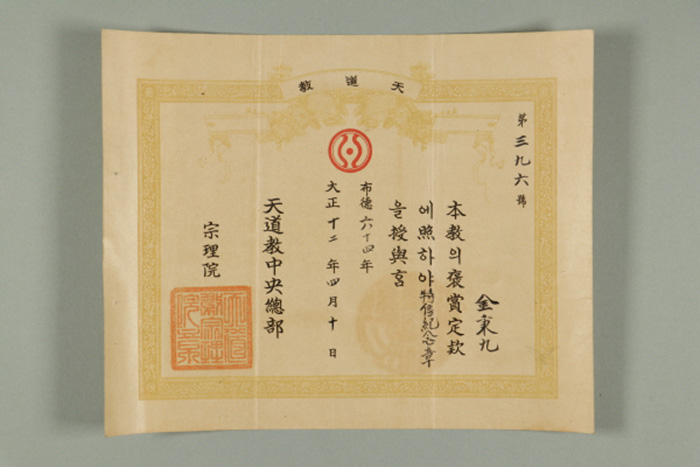 天道教
第三九六號
金秉九
本教의褒賞定款
에照하야特信紀念章
을授與홈
布德六十四年
大正十二年四月十日
天道教中央總部
宗理院